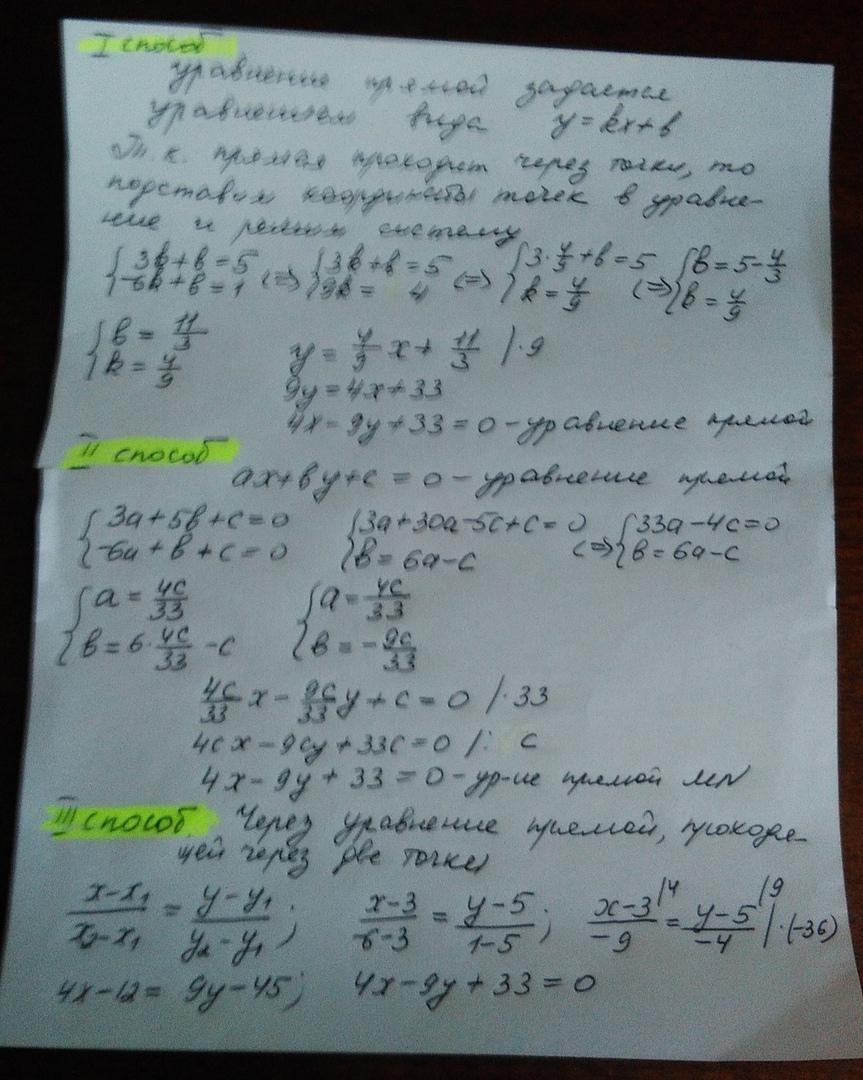 I способ
уравнение прямой задается
уравнением вида y = kx + b
Т.к. прямая проходит через точки, то
подставим координаты точек в уравне-
ние и решим систему
{3k+b=5 {-6k+b=1 <=> {3k+b=5 {9k=4 <=> {3·4/9+b=5 {k=4/9 <=> {b=5-4/3 {k=4/9
{b=11/3 {k=4/9 y = 4/9 x + 11/3 /·9
9y = 4x + 33
4x - 9y + 33 = 0 - уравнение прямой
II способ
ax + by + c = 0 - уравнение прямой
{3a+5b+c=0 {-6a+b+c=0 {3a+30a-5c+c=0 {b=6a-c <=> {33a-4c=0 {b=6a-c
{a=4c/33 {b=6·4c/33-c {a=4c/33 {b=-9c/33
4c/33 x - 9c/33 y + c = 0 /·33
4cx - 9cy + 33c = 0 /: c
4x - 9y + 33 = 0 - ур-ие прямой MN
III способ. Через уравнение прямой, проходя-
щей через две точки
x-x₁/x₂-x₁ = y-y₁/y₂-y₁; x-3/-6-3 = y-5/1-5; x-3/-9 /4 = y-5/-4 /9 /·(-36)
4x-12 = 9y-45; 4x-9y+33=0